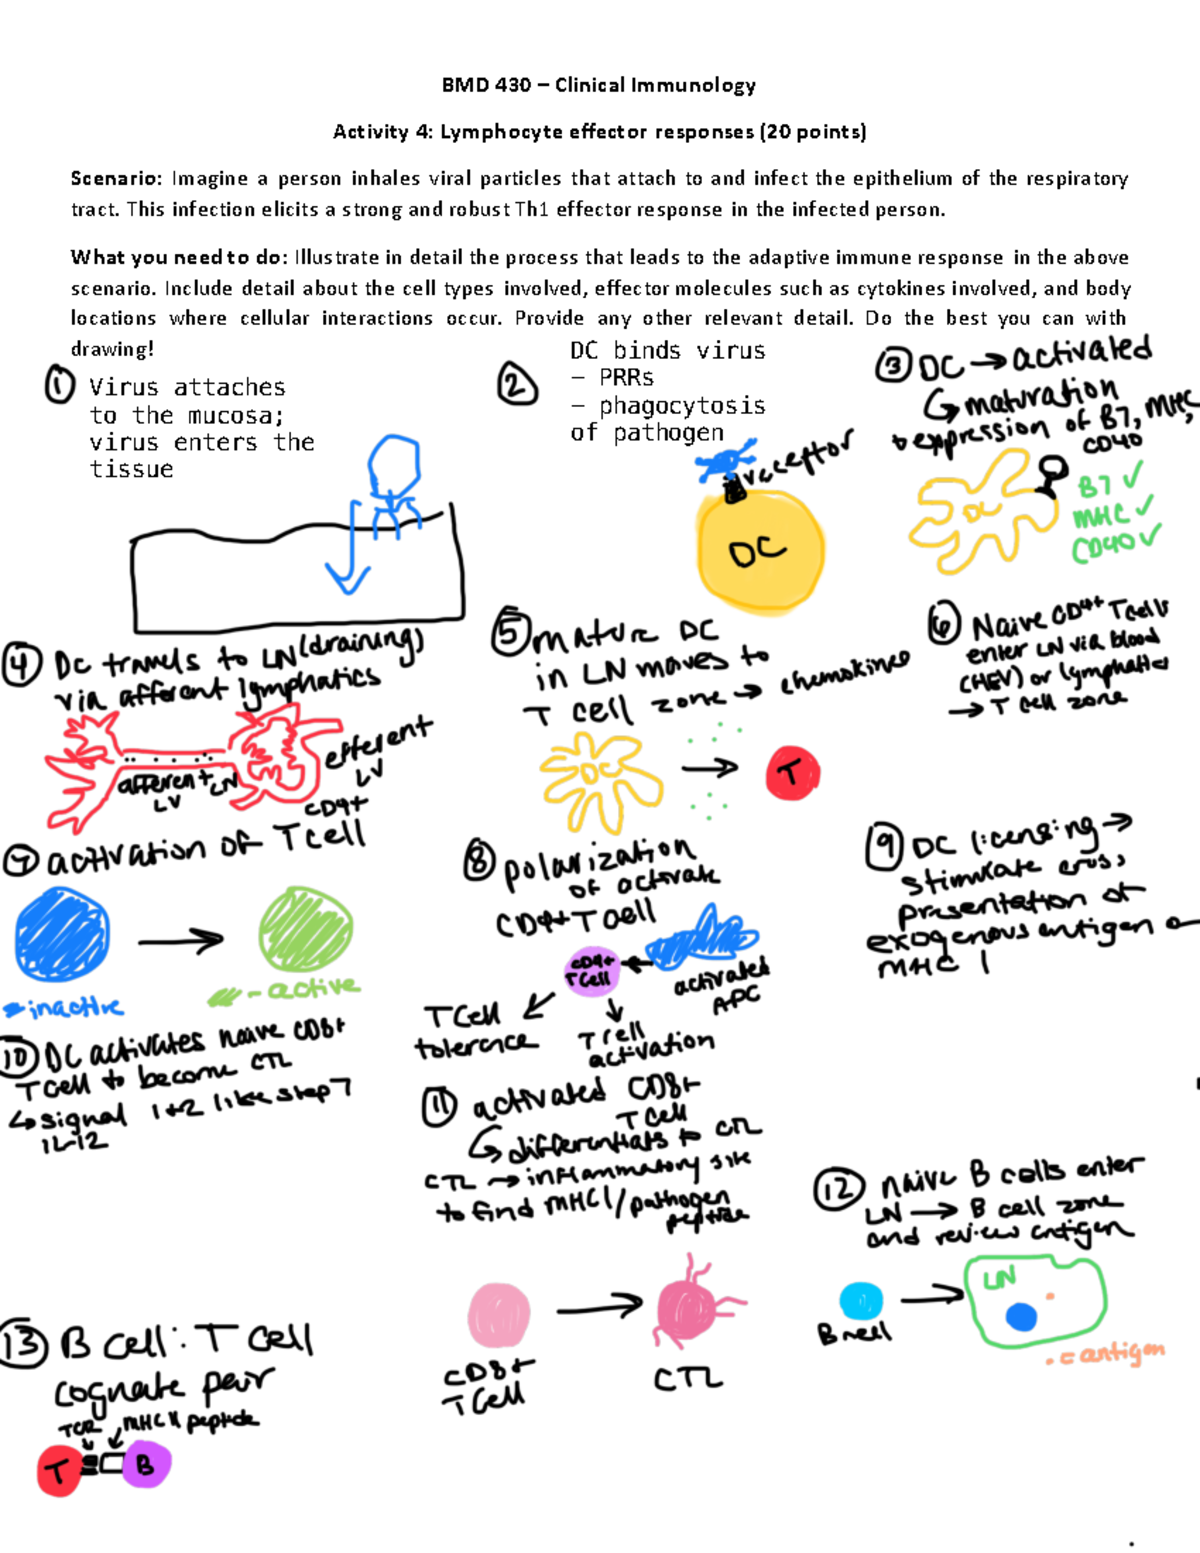 BMD 430 – Clinical Immunology
Activity 4: Lymphocyte effector responses (20 points)
Scenario: Imagine a person inhales viral particles that attach to and infect the epithelium of the respiratory
tract. This infection elicits a strong and robust Th1 effector response in the infected person.
What you need to do: Illustrate in detail the process that leads to the adaptive immune response in the above
scenario. Include detail about the cell types involved, effector molecules such as cytokines involved, and body
locations where cellular interactions occur. Provide any other relevant detail. Do the best you can with
drawing!
① Virus attaches
to the mucosa;
virus enters the
tissue
②
DC binds virus
– PRRs
– phagocytosis
of pathogen
receptor
DC
③ DC → activated
↳ maturation
expression of B7, MHC,
CD40
DC
B7 ✓
MHC ✓
CD40 ✓
④ DC travels to LN (draining)
via afferent lymphatics
afferent
LV
LN
efferent
LV
⑤ mature DC
in LN moves to
T cell zone → chemokines
DC
T
⑥ Naive CD4+ T cells
enter LN via blood
(HEV) or lymphatics
→ T cell zone
⑦ activation of CD4+ T cell
- inactive
- active
⑧ polarization
of activate
CD4+ T cell
CD4+
T cell
activated
APC
T cell
tolerance
T cell
activation
⑨ DC licensing →
stimulate cross
presentation of
exogenous antigen on
MHC 1
⑩ DC activates naive CD8+
T cell to become CTL
↳ signal 1+2 like step 7
IL-12
⑪ activated CD8+
T cell
↳ differentiates to CTL
CTL → inflammatory site
to find MHC1/pathogen
peptide
CD8+
T cell
CTL
⑫ naive B cells enter
LN → B cell zone
and review antigen
B cell
LN
. = antigen
⑬ B cell : T cell
cognate pair
TCR
MHC II peptide
T
B